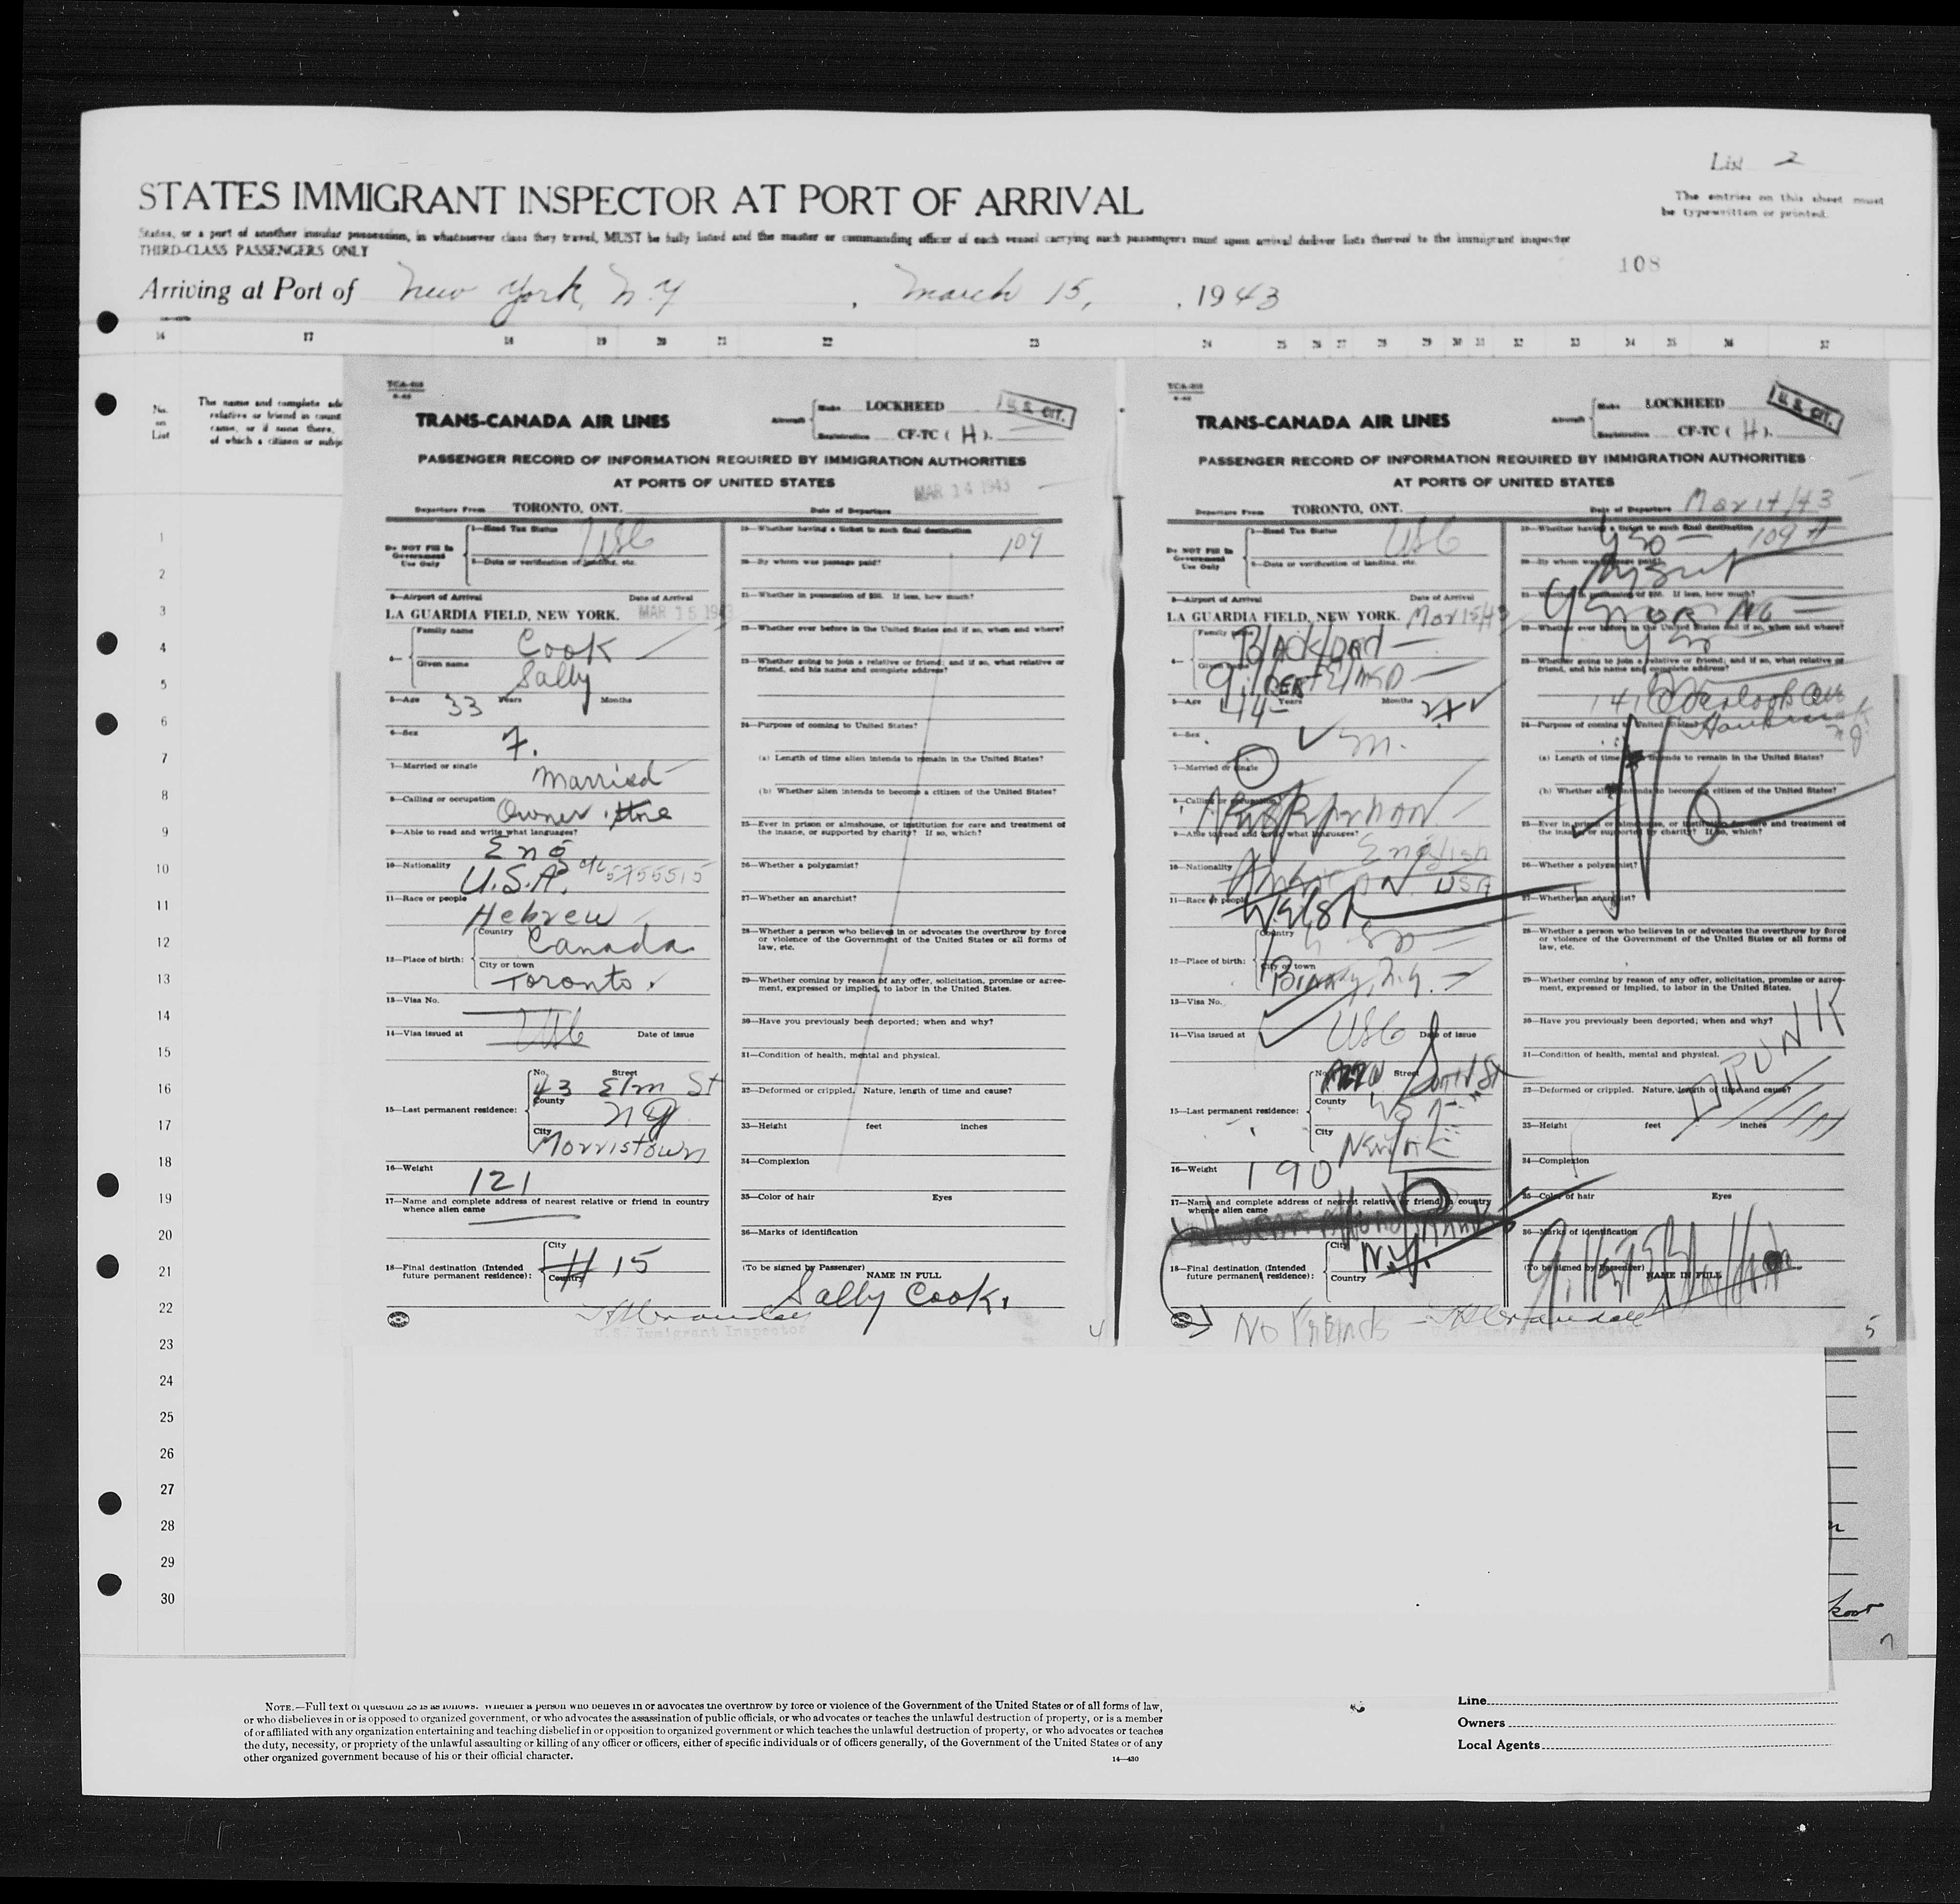 List 2
STATES IMMIGRANT INSPECTOR AT PORT OF ARRIVAL
The entries on this sheet must
be typewritten or printed.
States, or a part of another insular possession, in whatsoever class they travel, MUST be fully listed and the master or commanding officer of each vessel carrying such passengers must upon arrival deliver lists thereof to the immigrant inspector
THIRD-CLASS PASSENGERS ONLY
108
Arriving at Port of New York, N.Y , March 15, , 1943
16 17 18 19 20 21 22 23 24 25 26 27 28 29 30 31 32 33 34 35 36 37
No.
on
List
The name and complete
relative or friend in
came, or if none there,
of which a citizen or
1
2
3
4
5
6
7
8
9
10
11
12
13
14
15
16
17
18
19
20
21
22
23
24
25
26
27
28
29
30
TRANS-CANADA AIR LINES
Aircraft Make LOCKHEED
Registration CF-TC ( H ).
U.S. CIT.
PASSENGER RECORD OF INFORMATION REQUIRED BY IMMIGRATION AUTHORITIES
AT PORTS OF UNITED STATES
MAR 14 1943
Departure From TORONTO, ONT. Date of Departure
Do NOT Fill in
Government
Use Only
1—Head Tax Status USC
2—Date or verification of landing, etc.
3—Airport of Arrival Date of Arrival
LA GUARDIA FIELD, NEW YORK. MAR 15 1943
4—
Family name Cook
Given name Sally
5—Age 33 Years Months
6—Sex F.
7—Married or single Married
8—Calling or occupation Owner Store
9—Able to read and write what languages?
Eng
10—Nationality U.S.A. 5755515
11—Race or people Hebrew
12—Place of birth:
Country Canada
City or town Toronto.
13—Visa No.
14—Visa issued at USC Date of issue
15—Last permanent residence:
No. Street
43 Elm St
County
NJ
City
Morristown
16—Weight 121
17—Name and complete address of nearest relative or friend in country
whence alien came
18—Final destination (Intended
future permanent residence):
City
Country
# 15
19—Whether having a ticket to such final destination
109
20—By whom was passage paid?
21—Whether in possession of $50. If less, how much?
22—Whether ever before in the United States and if so, when and where?
23—Whether going to join a relative or friend; and if so, what relative or
friend, and his name and complete address?
24—Purpose of coming to United States?
(a) Length of time alien intends to remain in the United States?
(b) Whether alien intends to become a citizen of the United States?
25—Ever in prison or almshouse, or institution for care and treatment of
the insane, or supported by charity? If so, which?
26—Whether a polygamist?
27—Whether an anarchist?
28—Whether a person who believes in or advocates the overthrow by force
or violence of the Government of the United States or all forms of
law, etc.
29—Whether coming by reason of any offer, solicitation, promise or agree-
ment, expressed or implied, to labor in the United States.
30—Have you previously been deported; when and why?
31—Condition of health, mental and physical.
32—Deformed or crippled. Nature, length of time and cause?
33—Height feet inches
34—Complexion
35—Color of hair Eyes
36—Marks of identification
(To be signed by Passenger)
NAME IN FULL
Sally Cook.
U.S. Immigrant Inspector
4
TRANS-CANADA AIR LINES
Aircraft Make LOCKHEED
Registration CF-TC ( H ).
U.S. CIT.
PASSENGER RECORD OF INFORMATION REQUIRED BY IMMIGRATION AUTHORITIES
AT PORTS OF UNITED STATES
Departure From TORONTO, ONT. Date of Departure Mar 14/43
Do NOT Fill in
Government
Use Only
1—Head Tax Status USC
2—Date or verification of landing, etc.
3—Airport of Arrival Date of Arrival
LA GUARDIA FIELD, NEW YORK. Mar 15/43
4—
Family name
Given name
5—Age 44 Years Months
6—Sex M.
7—Married or single
8—Calling or occupation
9—Able to read and write what languages?
English
10—Nationality USA
11—Race or people Welsh
12—Place of birth:
Country
City or town
13—Visa No.
14—Visa issued at USC Date of issue
15—Last permanent residence:
No. Street
County
City
New York
16—Weight 190
17—Name and complete address of nearest relative or friend in country
whence alien came
18—Final destination (Intended
future permanent residence):
City
Country
N.Y.
No Friends
19—Whether having a ticket to such final destination
109
20—By whom was passage paid?
21—Whether in possession of $50. If less, how much?
22—Whether ever before in the United States and if so, when and where?
23—Whether going to join a relative or friend; and if so, what relative or
friend, and his name and complete address?
141 Overlook Ave
24—Purpose of coming to United States?
(a) Length of time alien intends to remain in the United States?
(b) Whether alien intends to become a citizen of the United States?
No
25—Ever in prison or almshouse, or institution for care and treatment of
the insane, or supported by charity? If so, which?
26—Whether a polygamist?
27—Whether an anarchist?
28—Whether a person who believes in or advocates the overthrow by force
or violence of the Government of the United States or all forms of
law, etc.
29—Whether coming by reason of any offer, solicitation, promise or agree-
ment, expressed or implied, to labor in the United States.
30—Have you previously been deported; when and why?
31—Condition of health, mental and physical.
DRUNK
32—Deformed or crippled. Nature, length of time and cause?
33—Height feet inches
34—Complexion
35—Color of hair Eyes
36—Marks of identification
(To be signed by Passenger)
NAME IN FULL
5
NOTE.—Full text of question 28 is as follows: Whether a person who believes in or advocates the overthrow by force or violence of the Government of the United States or of all forms of law,
or who disbelieves in or is opposed to organized government, or who advocates the assassination of public officials, or who advocates or teaches the unlawful destruction of property, or is a member
of or affiliated with any organization entertaining and teaching disbelief in or opposition to organized government or which teaches the unlawful destruction of property, or who advocates or teaches
the duty, necessity, or propriety of the unlawful assaulting or killing of any officer or officers, either of specific individuals or of officers generally, of the Government of the United States or of any
other organized government because of his or their official character.
14—430
Line
Owners
Local Agents